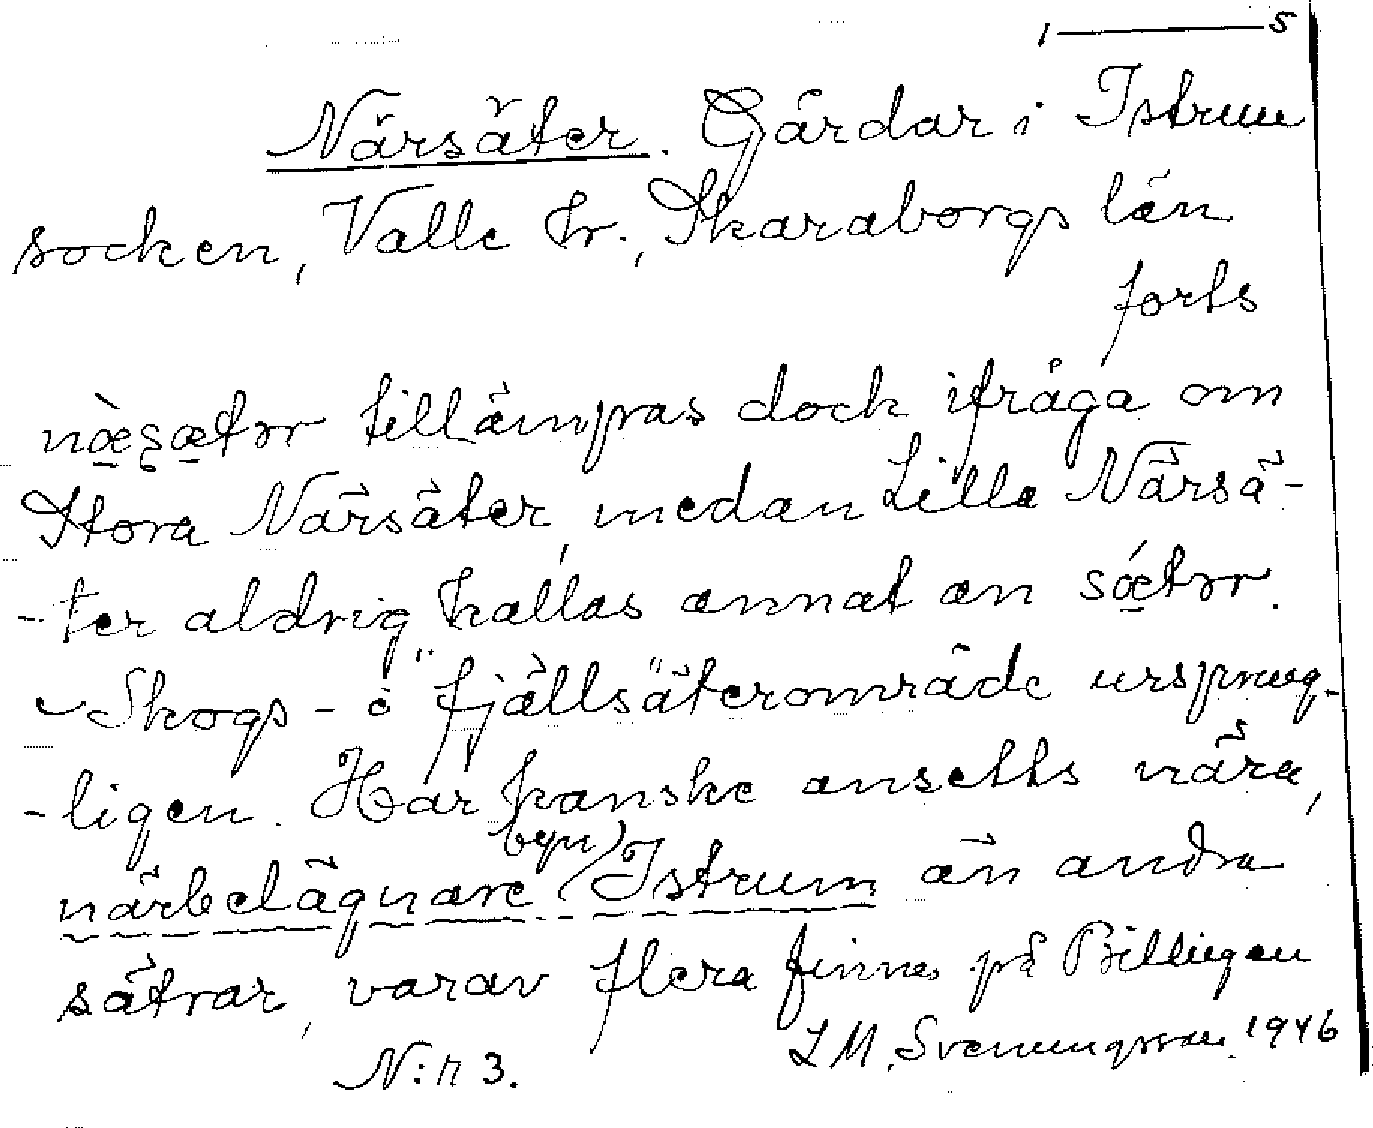 1 — 5
Närsäter. Gårdar i Istrum
socken, Valle hr., Skaraborgs län
forts
næ̀sætər tillämpas dock ifråga om
Stora Närsäter, medan Lilla Närsä-
-ter aldrig kallas annat än sǽtər.
Skogs- o "fjällsäterområde ursprug-
-ligen. Har kanske ansetts nära,
närbelägnare (byn) Istrum än andra
sätrar, varav flera finnes på Billingen
N:r 3. L M. Svenungsson. 1946